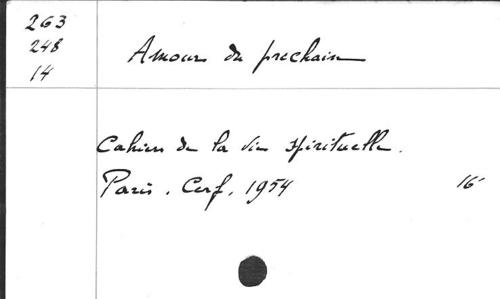 263
248
14
Amour du prochain
Cahiers de la vie spirituelle.
Paris. Cerf, 1954 16°